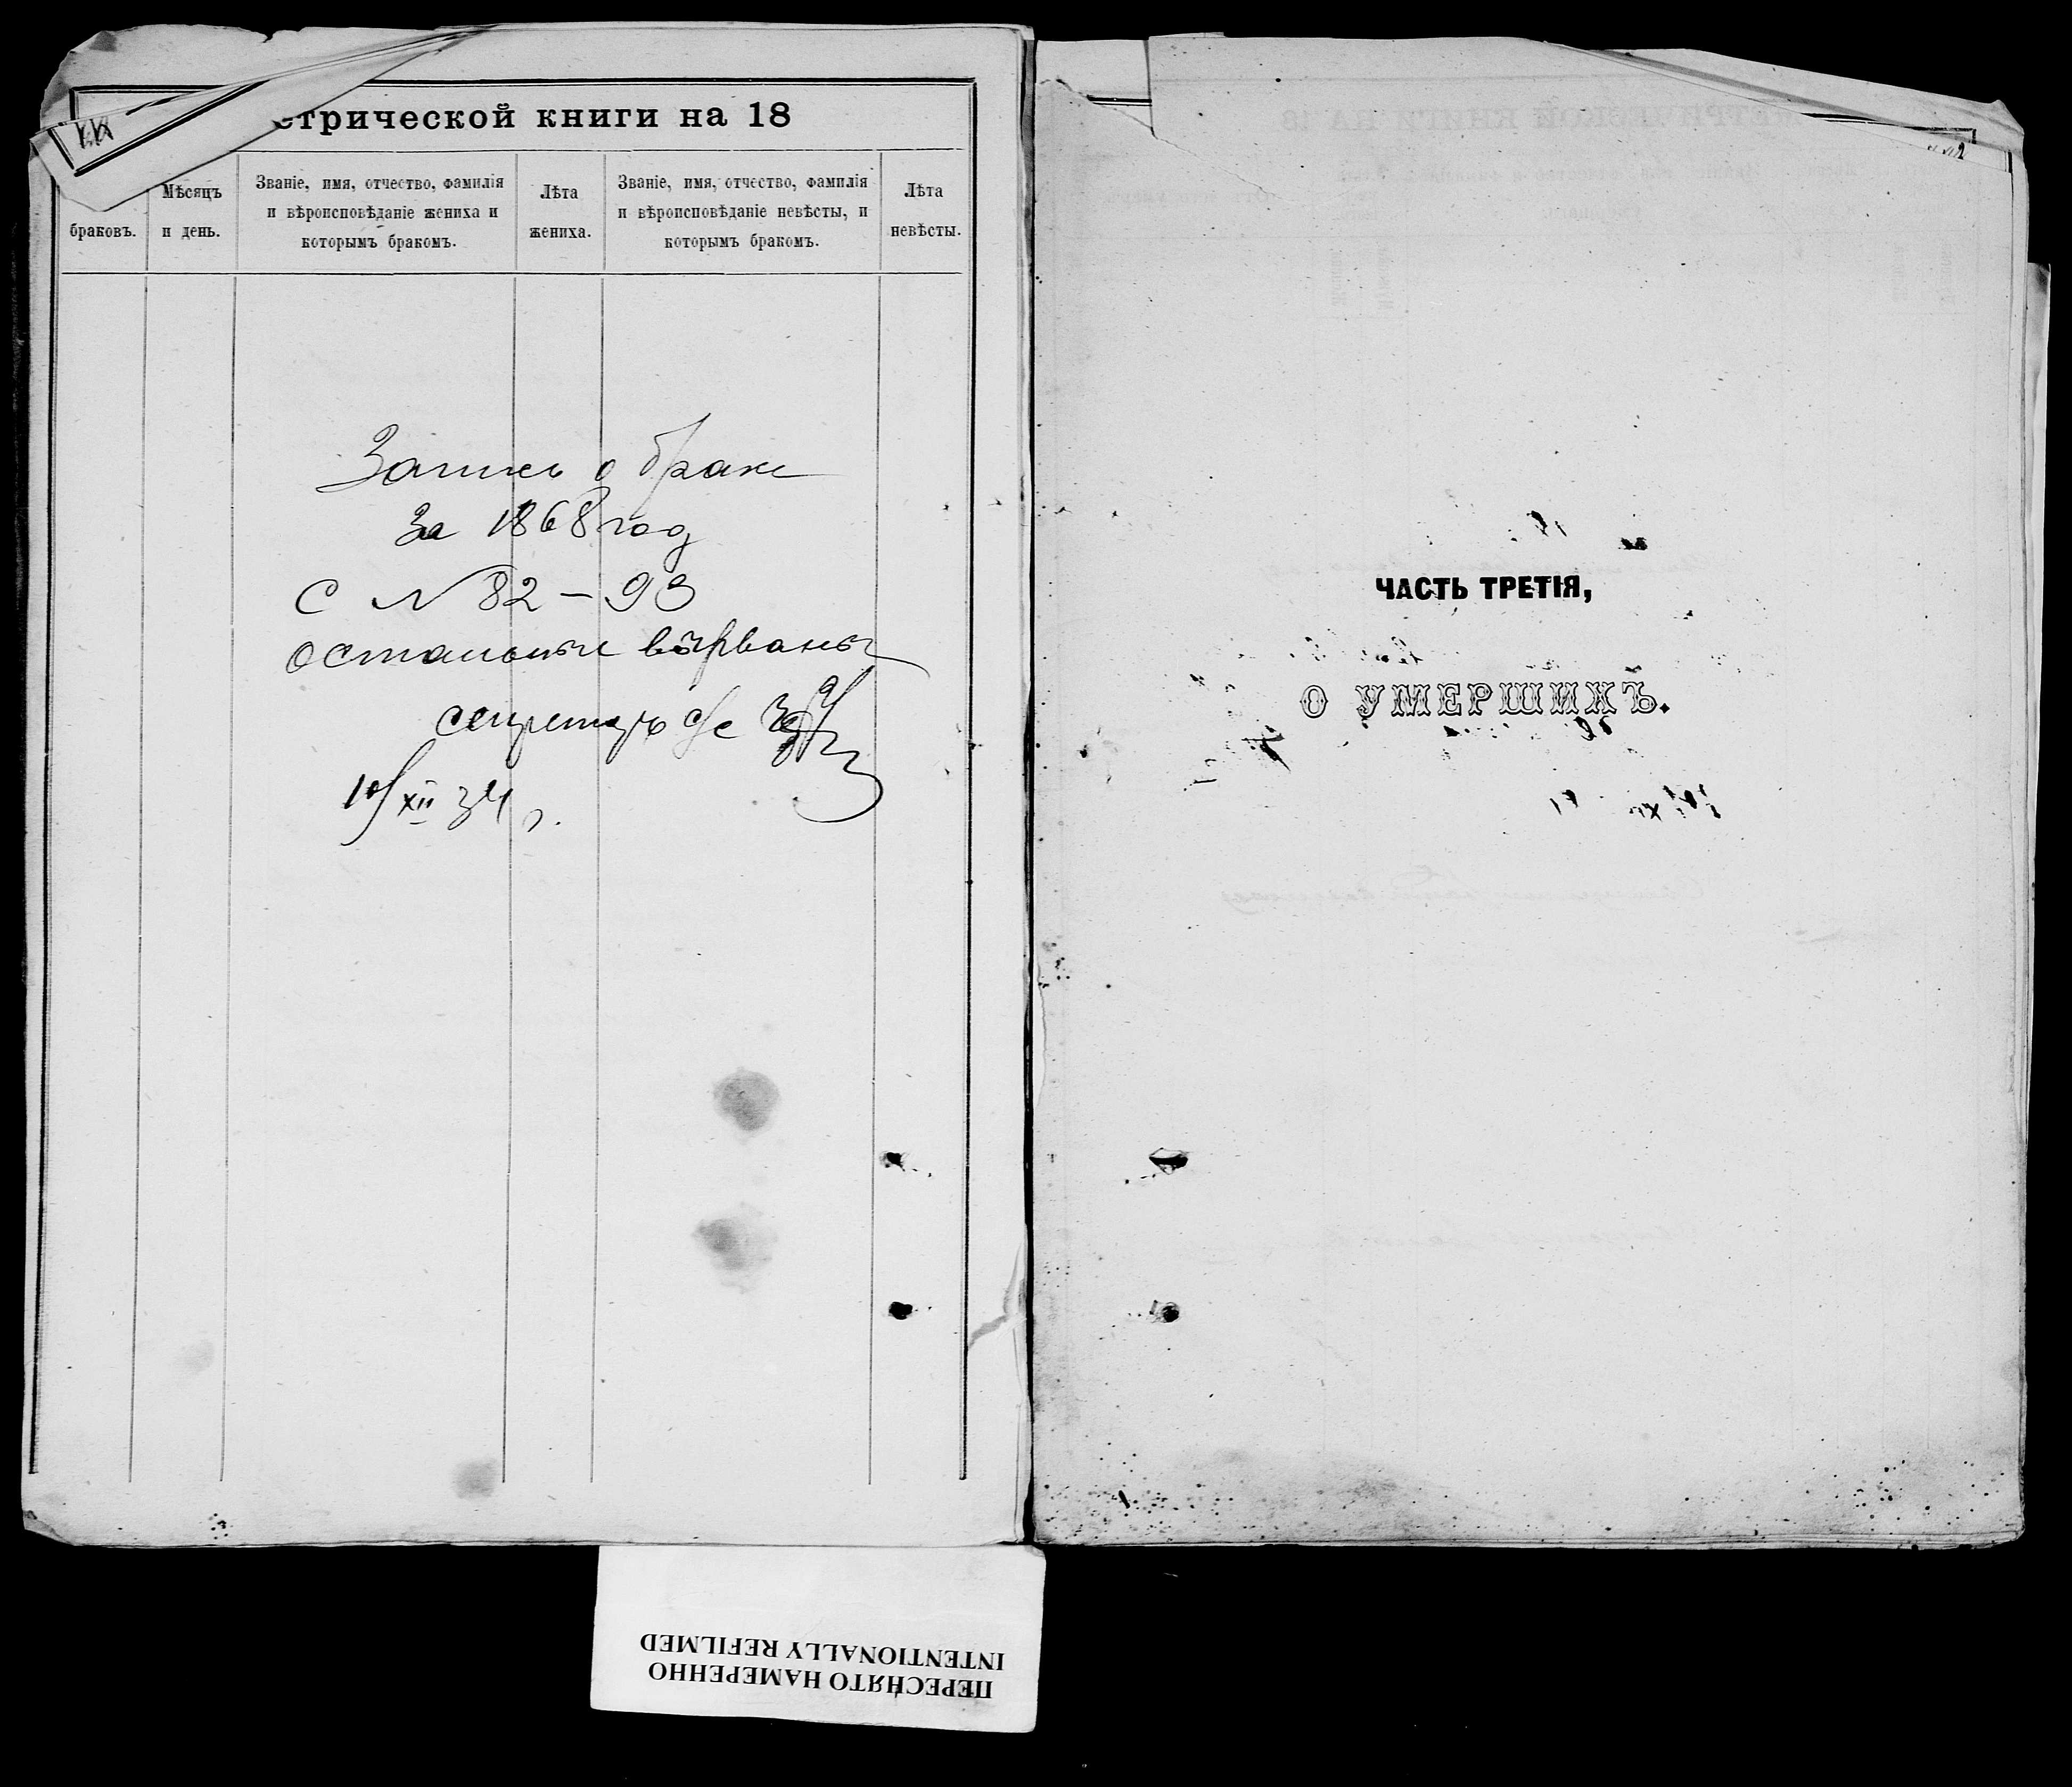 етрической книги на 18
браковъ.
Мѣсяцъ
и день.
Званіе, имя, отчество, фамилія
и вѣроисповѣданіе жениха и
которымъ бракомъ.
Лѣта
жениха.
Званіе, имя, отчество, фамилія
и вѣроисповѣданіе невѣсты, и
которымъ бракомъ.
Лѣта
невѣсты.
Запись о браке
за 1868 год
с № 82 – 93
остальные вырваны
секретарь с/с
10/XII 34 г.
ЧАСТЬ ТРЕТІЯ,
О УМЕРШИХЪ.
ПЕРЕСНЯТО НАМЕРЕННО
INTENTIONALLY REFILMED